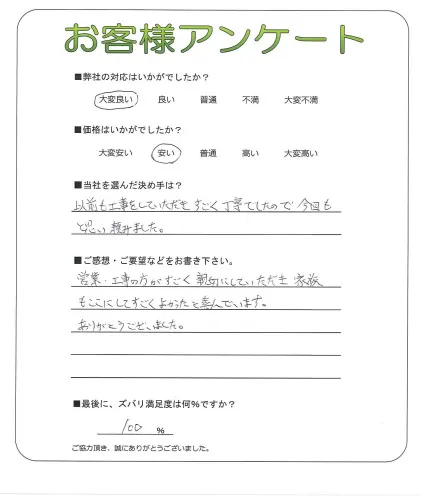 お客様アンケート
■弊社の対応はいかがでしたか?
大変良い 良い 普通 不満 大変不満
■価格はいかがでしたか?
大変安い 安い 普通 高い 大変高い
■当社を選んだ決め手は?
以前も工事をしていただきすごく丁寧でしたので今回も
と思い頼みました。
■ご感想・ご要望などをお書き下さい。
営業・工事の方がすごく親切にしていただき家族
もここにしてすごくよかったと喜んでいます。
ありがとうございました。
■最後に、ズバリ満足度は何%ですか?
100 %
ご協力頂き、誠にありがとうございました。